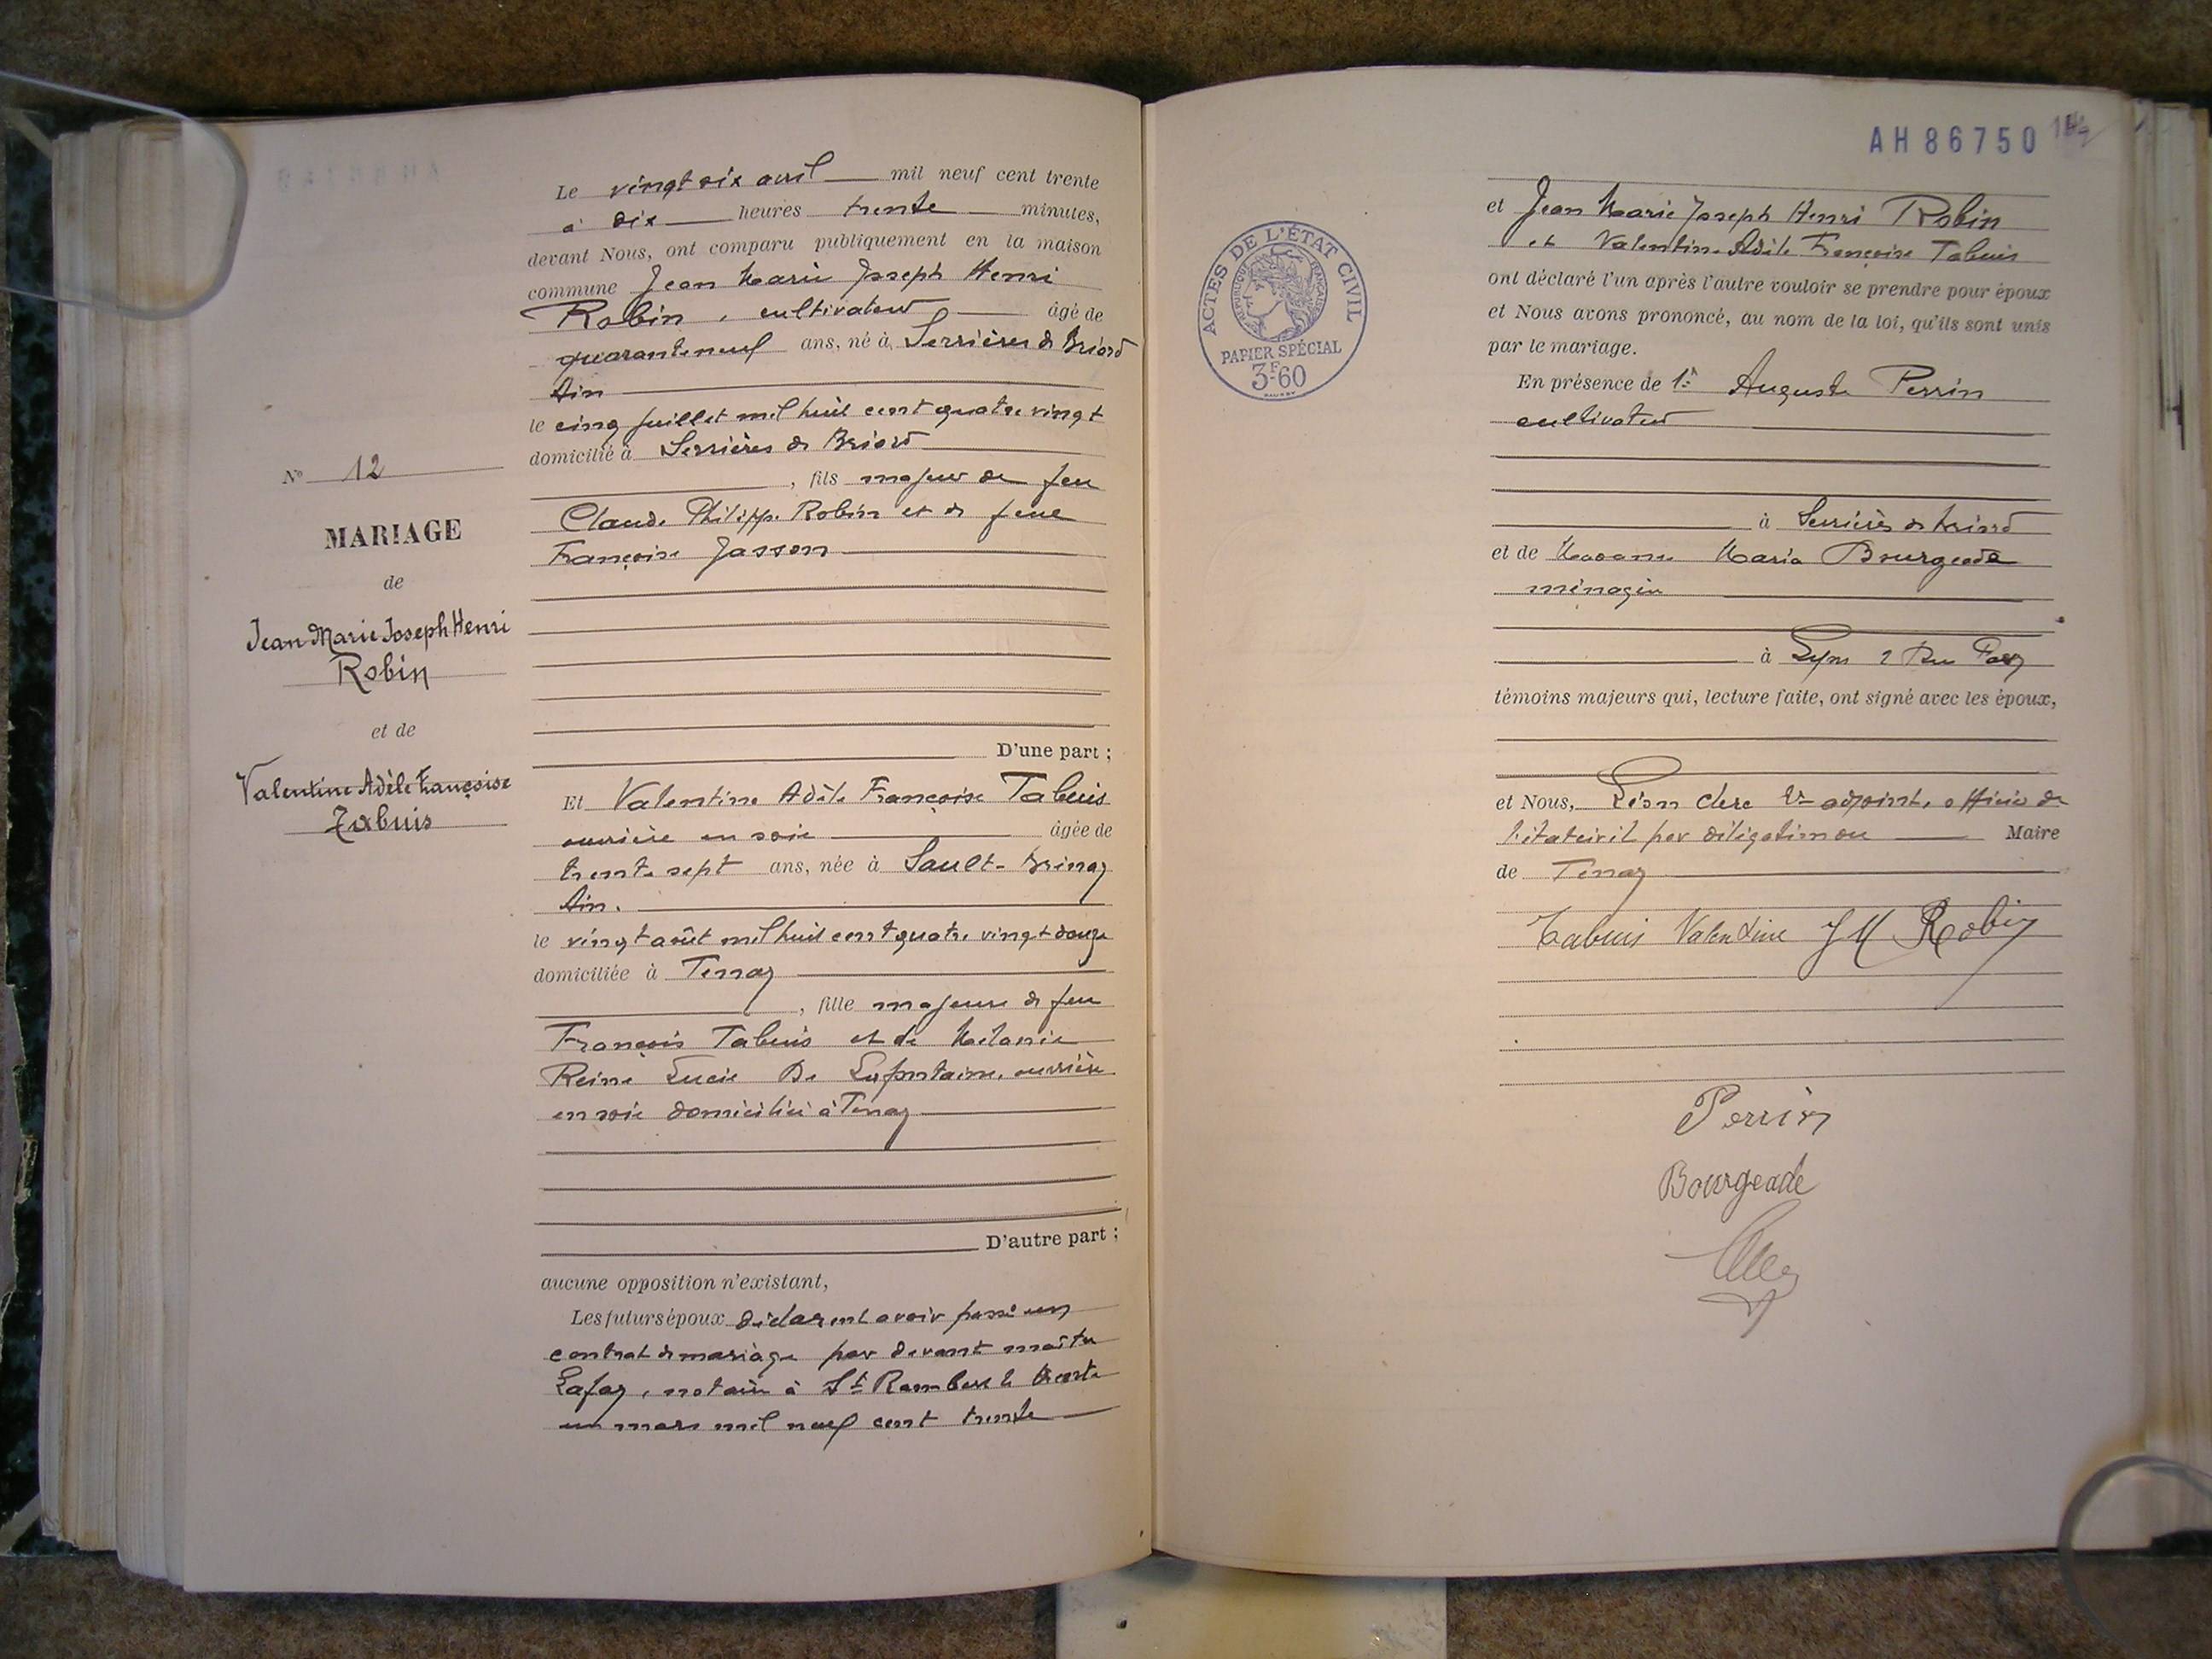 Le vingt six avril mil neuf cent trente
à dix heures trente minutes,
devant Nous, ont comparu publiquement en la maison
commune Jean Marie Joseph Henri
Robin, cultivateur âgé de
quarante neuf ans, né à Serrières de Briord
Ain
le cinq juillet mil huit cent quatre vingt
domicilié à Serrières de Briord
, fils majeur de feu
Claude Philippe Robin et de feue
Françoise Jasson
D'une part ;
Et Valentine Adèle Françoise Tabuis
ouvrière en soie âgée de
trente sept ans, née à Sault-Brenaz
Ain.
le vingt août mil huit cent quatre vingt douze
domiciliée à Tenay
, fille majeure de feu
François Tabuis et de Mélanie
Reine Lucie De Lafontaine, ouvrière
en soie domiciliée à Tenay
D'autre part ;
aucune opposition n'existant,
Les futurs époux déclarent avoir passé un
contrat de mariage par devant maître
Lafay, notaire à St Rambert le trente
un mars mil neuf cent trente
No 12
MARIAGE
de
Jean Marie Joseph Henri
Robin
et de
Valentine Adèle Françoise
Tabuis
AH 86750
ACTES DE L'ÉTAT CIVIL
RÉPUBLIQUE FRANÇAISE
PAPIER SPÉCIAL
3F60
et Jean Marie Joseph Henri Robin
et Valentine Adèle Françoise Tabuis
ont déclaré l'un après l'autre vouloir se prendre pour époux
et Nous avons prononcé, au nom de la loi, qu'ils sont unis
par le mariage.
En présence de Auguste Perrin
cultivateur
à Serrières de Briord
et de Madame Maria Bourgeade
ménagère
à Lyon 2 Rue
témoins majeurs qui, lecture faite, ont signé avec les époux,
et Nous, Léon Clerc adjoint, officier de
l'état civil par délégation du Maire
de Tenay
Tabuis Valentine J M Robin
Perrin
Bourgeade